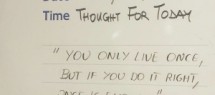 Time THOUGHT FOR TODAY
" YOU ONLY LIVE ONCE,
BUT IF YOU DO IT RIGHT,